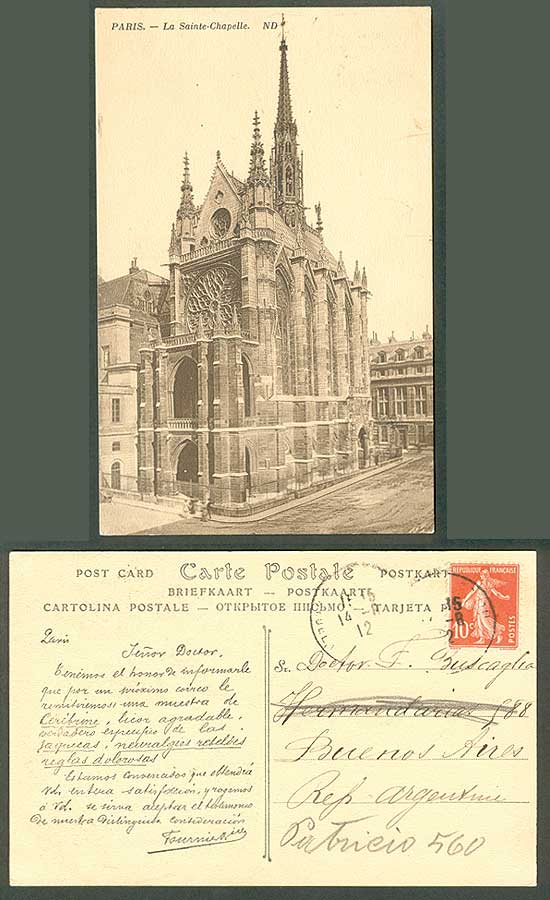 PARIS. — La Sainte-Chapelle. ND
POST CARD Carte Postale POSTKART
BRIEFKAART — POSTKARTE
CARTOLINA POSTALE — ОТКРЫТОЕ ПИСЬМО — TARJETA P
REPUBLIQUE FRANÇAISE
10c
POSTES
14
12
15
Paris
Señor Doctor,
Tenemos el honor de informarle
que por un próximo correo le
remitiremos una muestra de
Cérébrine, licor agradable,
verdadero específico de las
Jaquecas, neuralgies rebeldes
reglas dolorosas
Estamos convencidos que obtendrá
Vd. entera satisfacción, y rogamos
á Vd. se sirva aceptar el testimonio
de nuestra distinguida consideración
Sr. Doctor F. Buscaglia
Hernandarias 588
Buenos Aires
Rep. Argentine
Patricio 560